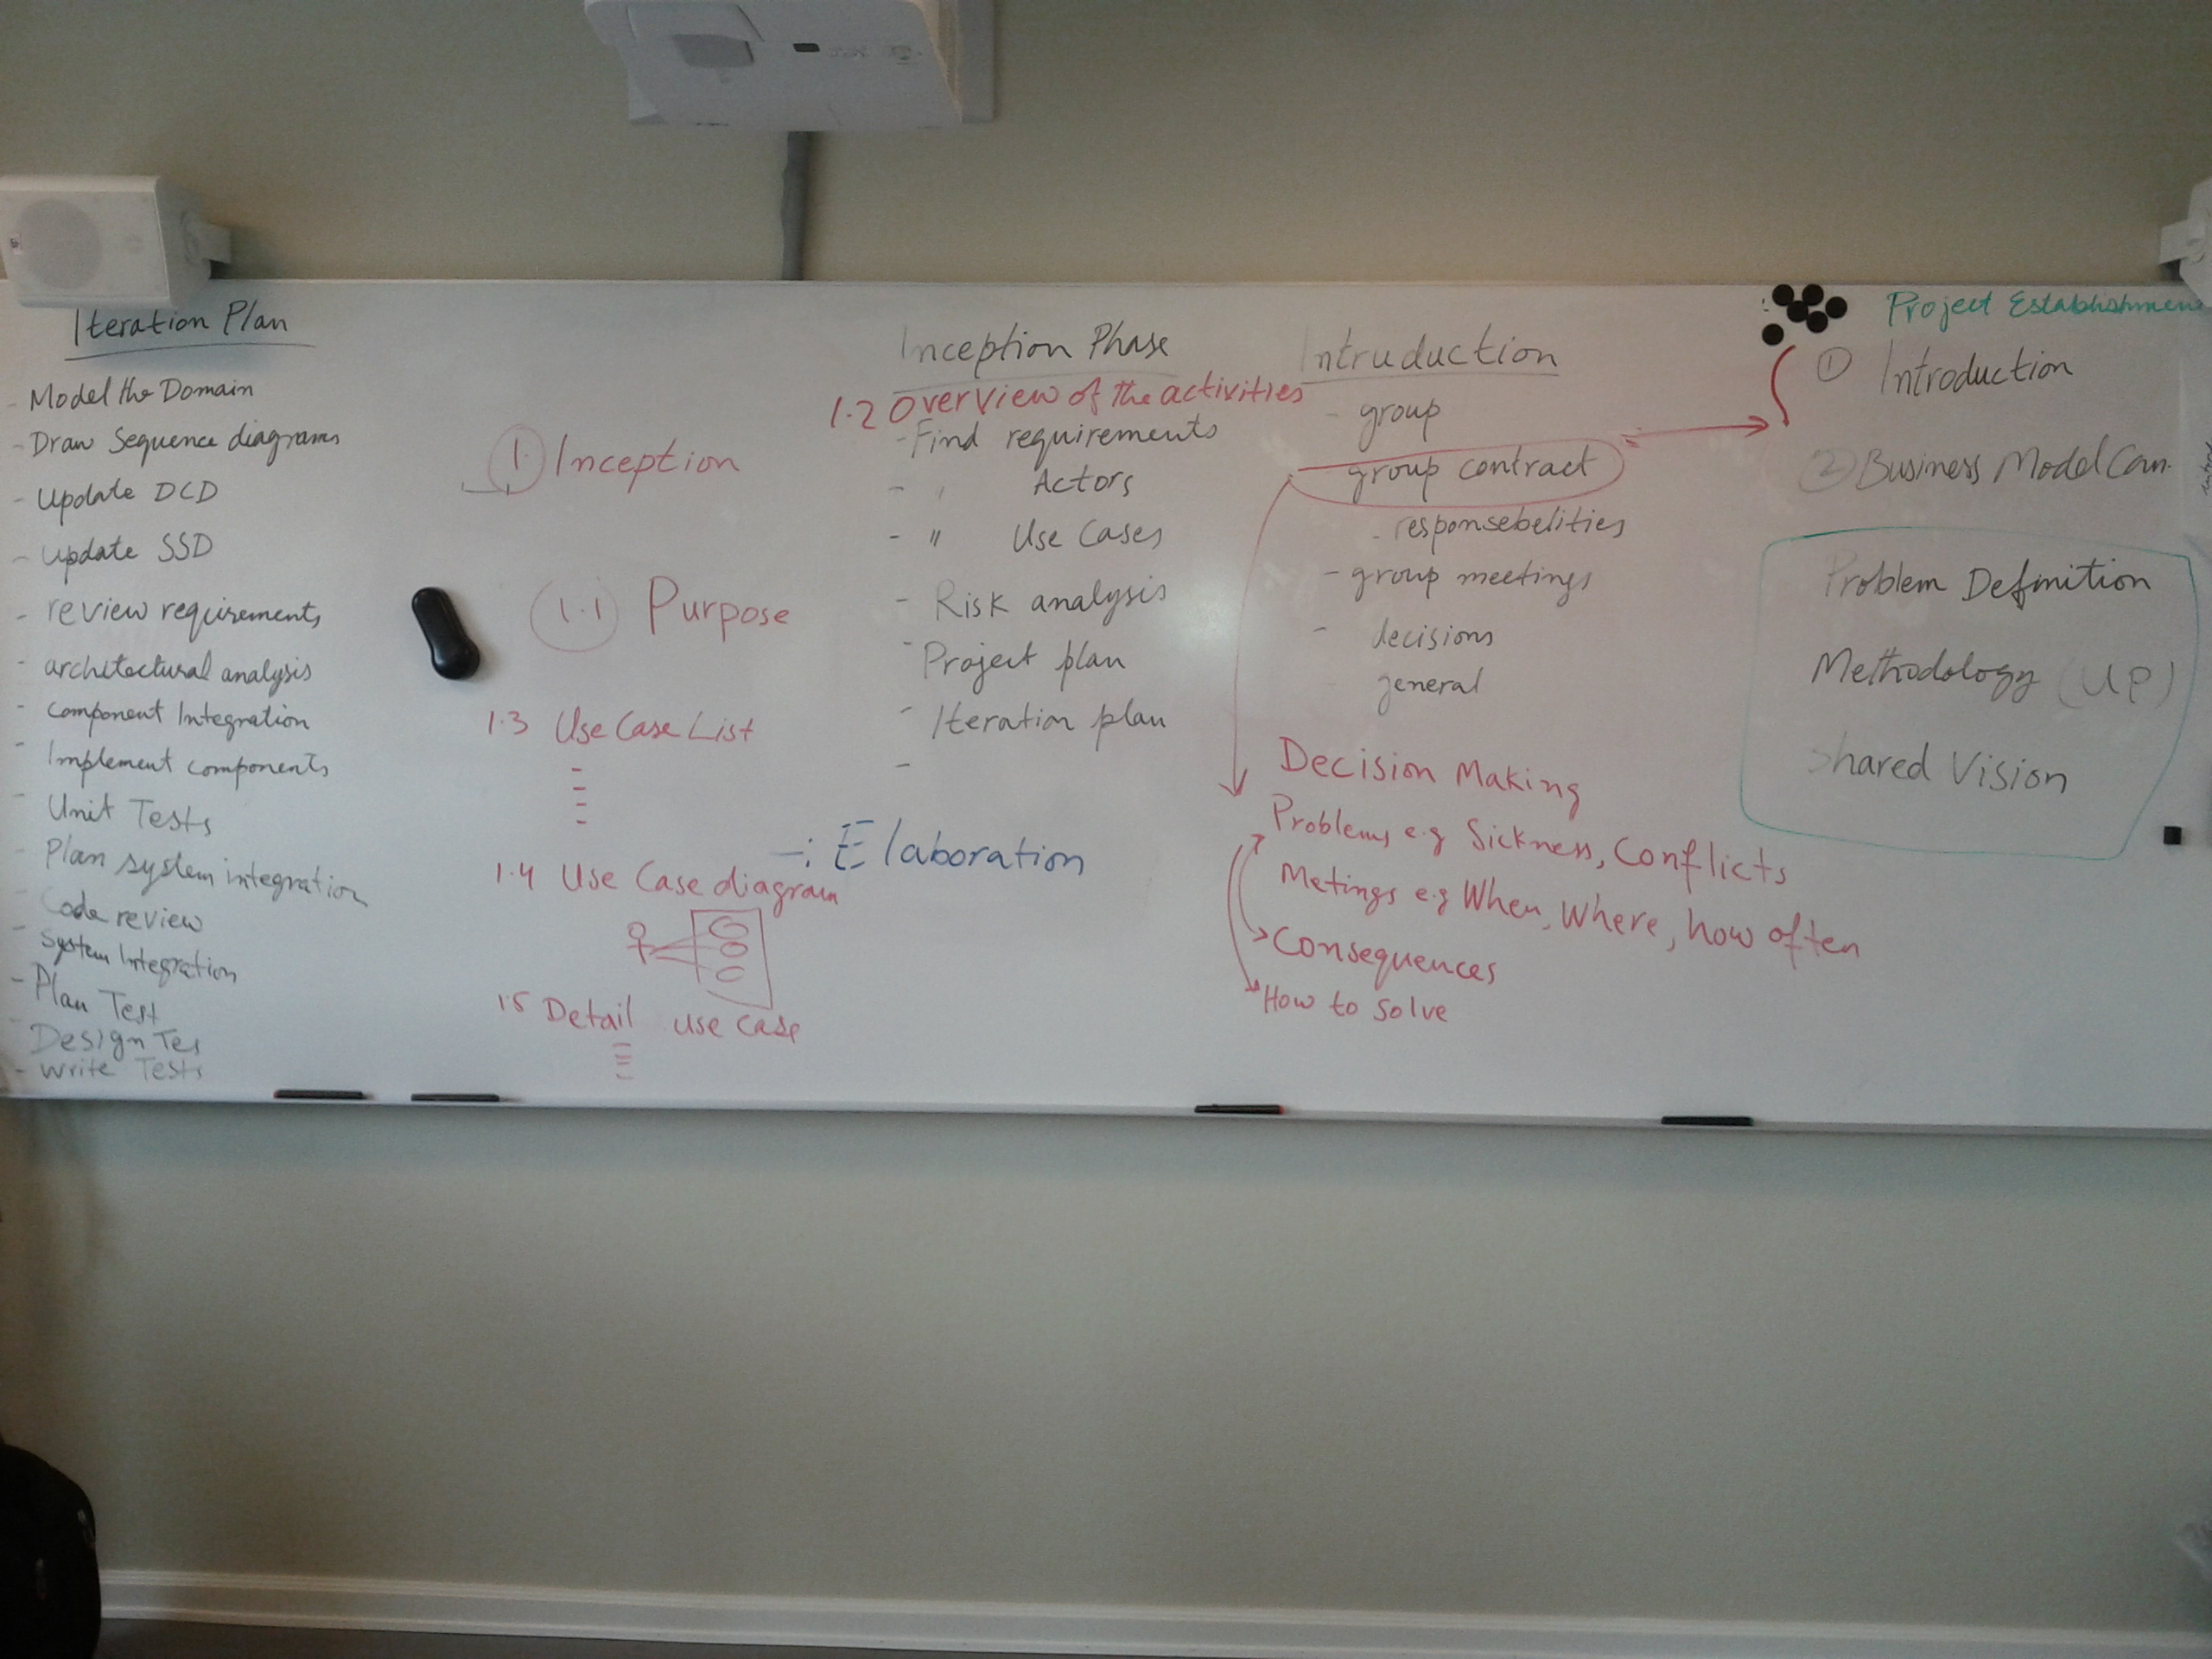 Iteration Plan
- Model the Domain
- Draw Sequence diagrams
- Update DCD
- Update SSD
- review requirements
- architectural analysis
- Component Integration
- Implement components
- Unit Tests
- Plan system integration
- Code review
- System Integration
- Plan Test
- Design Tes
- Write Tests
1. Inception
1.1 Purpose
1.3 Use Case List
1.4 Use Case diagram
1.5 Detail use case
Inception Phase
1.2 Overview of the activities
- Find requirements
- " Actors
- " Use Cases
- Risk analysis
- Project plan
- Iteration plan
-
-: Elaboration
Intruduction
- group
group contract
- responsebelities
- group meetings
- decisions
general
Decision Making
Problems e.g Sickness, Conflicts
Metings e.g When, Where, how often
Consequences
How to solve
Project Establishmen
1 Introduction
2 Business Model Can.
Problem Definition
Methodology (UP)
Shared Vision